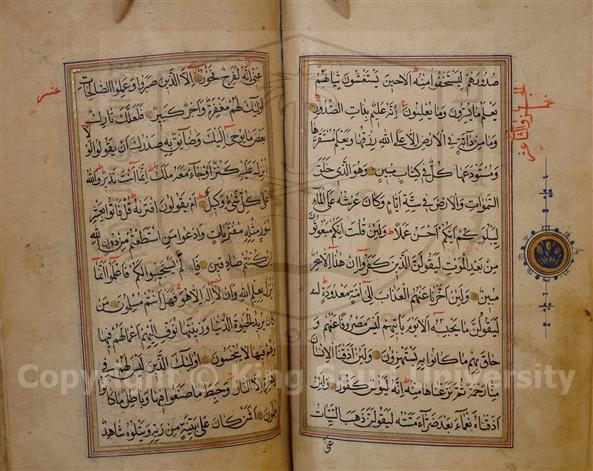 صدورهم ليستخفوا منه الا حين يستغشون ثيابهم
يعلم ما يسرون وما يعلنون انه عليم بذات الصدور
وما من دآبة في الارض الا على الله رزقها ويعلم مستقرها
ومستودعها كل في كتاب مبين وهو الذي خلق
السموات والارض في ستة ايام وكان عرشه على الماء
ليبلوكم ايكم احسن عملا ولئن قلت انكم مبعوثون
من بعد الموت ليقولن الذين كفروا ان هذا الا سحر
مبين ولئن اخرنا عنهم العذاب الى امة معدودة
ليقولن ما يحبسه الا يوم ياتيهم ليس مصروفا عنهم و
حاق بهم ما كانوا به يستهزؤن ولئن اذقنا الانسان
منا رحمة ثم نزعناها منه انه ليؤس كفور ولئن
اذقناه نعماء بعد ضراء مسته ليقولن ذهب السيئات
عني
عني انه لفرح فخور الا الذين صبروا وعملوا الصالحات
اولئك لهم مغفرة واجر كبير فلعلك تارك
بعض ما يوحى اليك وضائق به صدرك ان يقولوا لولا
انزل عليه كنز او جاء معه ملك انما انت نذير والله
على كل شيء وكيل ام يقولون افتريه قل فاتوا بعشر
سور مثله مفتريات وادعوا من استطعتم من دون الله
ان كنتم صادقين فان لم يستجيبوا لكم فاعلموا انما
انزل بعلم الله وان لا اله الا هو فهل انتم مسلمون من
كان يريد الحيوة الدنيا وزينتها نوف اليهم اعمالهم فيها
وهم فيها لا يبخسون اولئك الذين ليس لهم في
الاخرة الا النار وحبط ما صنعوا فيها وباطل ما كانوا
يعملون افمن كان على بينة من ربه ويتلوه شاهد
عشر
Copyright © King Saud University